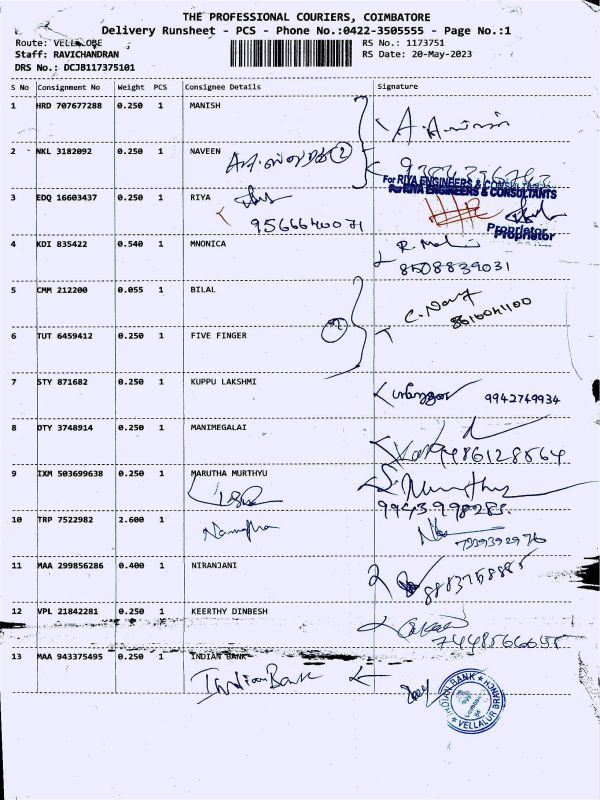 THE PROFESSIONAL COURIERS, COIMBATORE
Delivery Runsheet - PCS - Phone No.:0422-3505555 - Page No.:1
Route: VELLALORE RS No.: 1173751
Staff: RAVICHANDRAN RS Date: 20-May-2023
DRS No.: DCJB117375101
S No Consignment No Weight PCS Consignee Details Signature
1 HRD 707677288 0.250 1 MANISH
2 NKL 3182092 0.250 1 NAVEEN
2
For RIYA ENGINEERS & CONSULTANTS
For RIYA ENGINEERS & CONSULTANTS
3 EDQ 16603437 0.250 1 RIYA
9566640071
Proprietor
Proprietor
4 KDI 835422 0.540 1 MNONICA
8508839031
5 CMM 212200 0.055 1 BILAL
6 TUT 6459412 0.250 1 FIVE FINGER
7 STY 871682 0.250 1 KUPPU LAKSHMI
9942749934
8 OTY 3748914 0.250 1 MANIMEGALAI
9486128564
9 IXM 503699638 0.250 1 MARUTHA MURTHYU
S. Murthy
10 TRP 7522982 2.600 1
11 MAA 299856286 0.400 1 NIRANJANI
12 VPL 21842281 0.250 1 KEERTHY DINBESH
13 MAA 943375495 0.250 1 INDIAN BANK
Indian Bank
INDIAN BANK
VELLALUR BRANCH